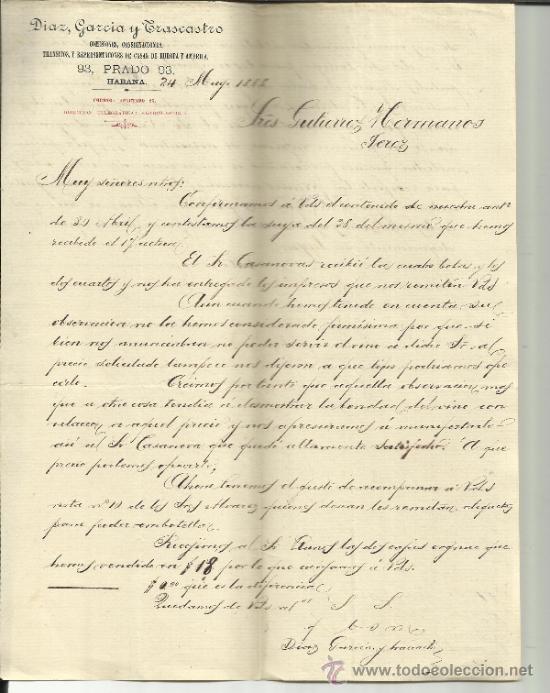 Diaz, Garcia y Trascastro
COMISIONES, CONSIGNACIONES,
TRANSITOS, Y REPRESENTACIONES DE CASAS DE EUROPA Y AMERICA.
93, PRADO 93.
HABANA, 24 May. 1888
Sres Gutierrez Hermanos
Jerez
Muy señores ntros:
Confirmamos á Vds el contenido de nuestra antr
de 30 Abril, y contestamos la suya del 28 del mismo que hemos
recibido el 17 actual
El Sr. Casanovas recibió las cuatro botas y los
dos cuartos y nos ha entregado los impresos que nos remiten Vds
Aun cuando hemos tenido en cuenta su
observacion no la hemos considerado por que si
bien nos anunciaban no poder servir el vino á dicho Sr. al
precio solicitado tampoco nos dijeron a que tipo podriamos
Creimos por tanto que aquella observacion mas
que a otra cosa tendia á demostrar la bondad del vino con
relacion a aquel precio y nos apresuramos á manifestarlo
asi al Sr Casanova que quedó altamente satisfecho. A que
precio podemos
Ahora tenemos el gusto de acompañar á Vds
nota nº 19 de los Sres Alvarez quienes desean les remitan etiquetas
para poder embotellar
Recojimos al Sr las dos cajas cognac que
hemos vendido en $18 por lo que á Vds.
que es la diferencia
Quedamos de Vds af S. S.
q b s m
Diaz Garcia y Trascastro
todocoleccion.net